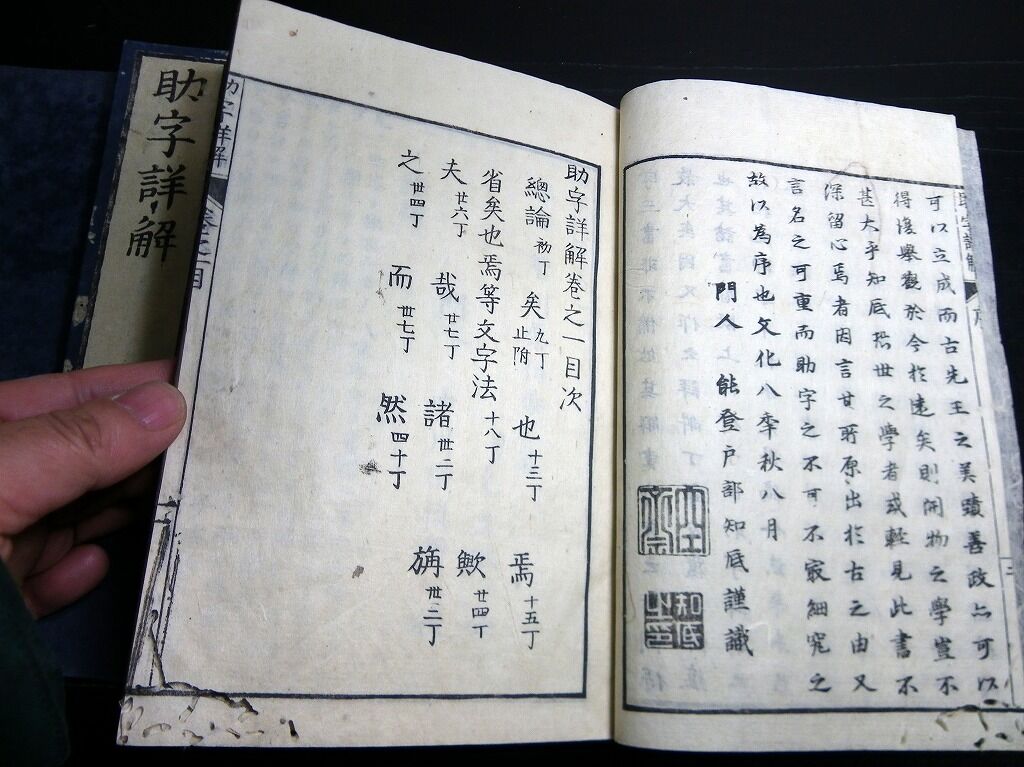 可以立成而古先王之美蹟善政亦可以
得復舉觀於今於遠矣則開物之學豈不
甚大乎知底恐世之學者或輕見此書不
深留心焉者因言其所原出於古之由又
言名之可重而助字之不可不家細究之
故以為序也文化八季秋八月
門人能登戸部知底謹識
知底
之印
助字詳解巻之一目次
總論初丁 矣九丁止附 也十三丁 焉十五丁
省矣也焉等文字法十八丁
夫廿六丁 哉廿七丁 諸卅二丁 歟廿四丁
之卅四丁 而卅七丁 然四十丁 旃卅二丁
助字詳解 巻之一目
助字詳解
助字詳解 序